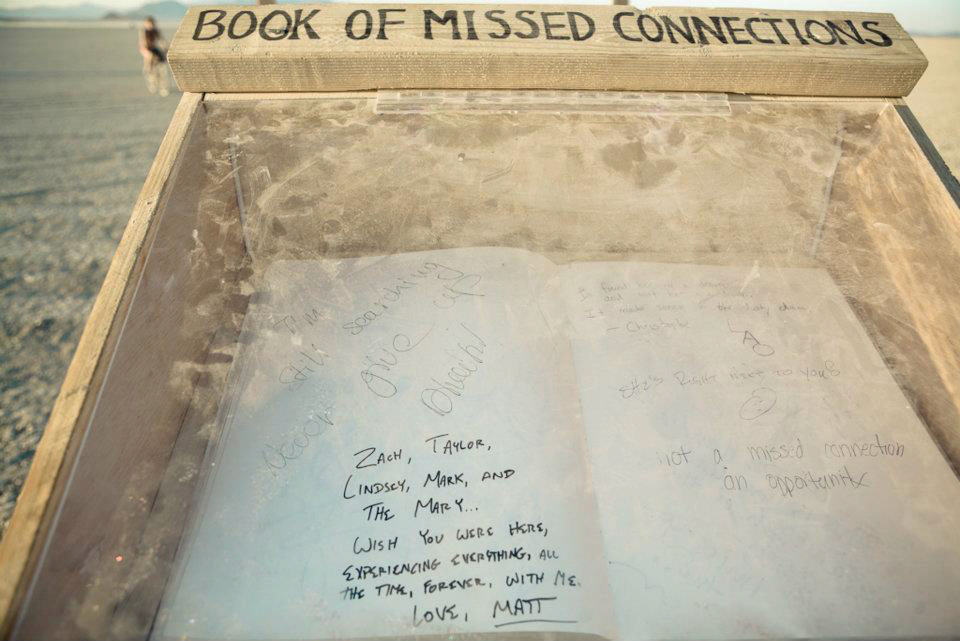 BOOK OF MISSED CONNECTIONS
I'm searching
Still
give up
ZACH, TAYLOR,
LINDSEY, MARK, AND
THE MARY...
WISH YOU WERE HERE,
EXPERIENCING EVERYTHING, ALL
THE TIME, FOREVER, WITH ME.
LOVE, MATT
I found
and
It made sense
SHE'S RIGHT next to you!
not a missed connection
an opportunity